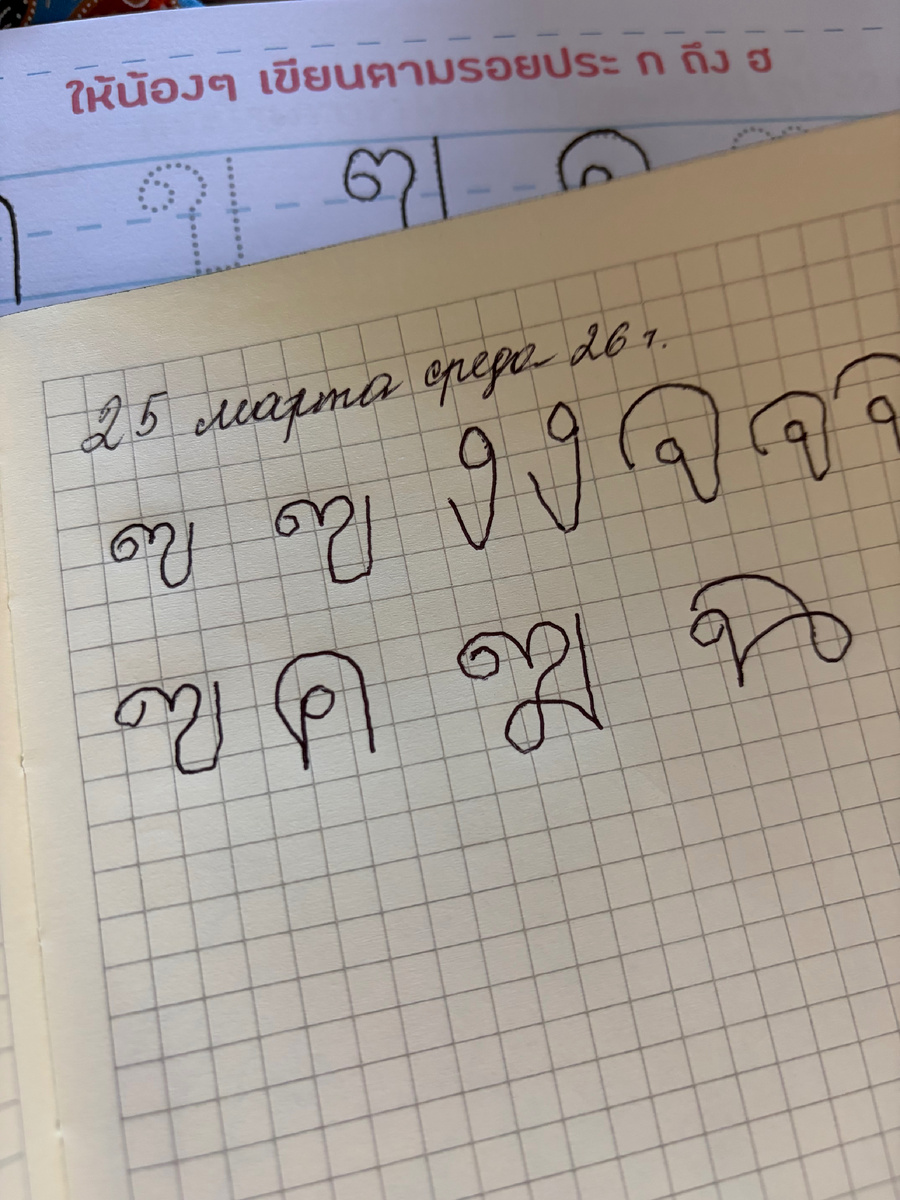 ให้น้องๆ เขียนตามรอยประ ก ถึง ฮ
ข ข ค
25 марта среда 26 г.
ข ข ง ง จ จ จ
ข ค ฆ ฉ